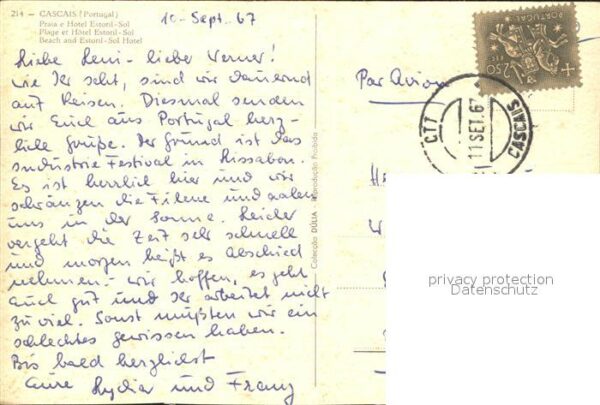 214 — CASCAIS (Portugal)
Praia e Hotel Estoril-Sol
Plage et Hôtel Estoril-Sol
Beach and Estoril-Sol Hotel
10. Sept. 67
Liebe Leni - lieber Werner!
Wie Ihr seht, sind wir dauernd
auf Reisen. Diesmal senden
wir Euch aus Portugal herz-
liche Grüße. Der Grund ist das
Industrie Festival in Lissabon.
Es ist herrlich hier und wir
schwänzen die Filme und aalen
uns in der Sonne. Leider
vergeht die Zeit sehr schnell
und morgen heißt es Abschied
nehmen. - Wir hoffen, es geht
Euch gut und Ihr arbeitet nicht
zu viel. Sonst müßten wir ein
schlechtes Gewissen haben.
Bis bald herzlichst
Eure Lydia und Franz
Colecção DÚLIA - Reprodução Proibida
Par Avion
PORTUGAL
2$50
CTT
11 SET. 67
CASCAIS
privacy protection
Datenschutz